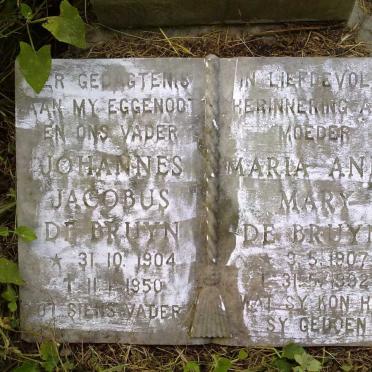 TER GEDAGTENIS
AAN MY EGGENOOT
EN ONS VADER
JOHANNES
JACOBUS
DE BRUYN
* 31.10.1904
† 11. .1950
TOT SIENS VADER
IN LIEFDEVOL
HERINNERING A
MOEDER
MARIA ANN
MARY
DE BRUYN
* 3.5.1907
† 31.5.1982
WAT SY KON H
SY GEDOEN